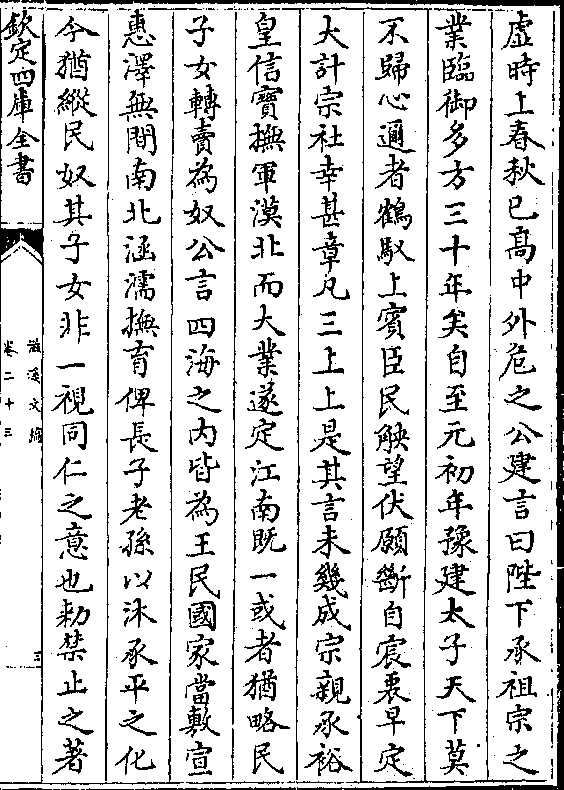 虚時上春秋已髙中外危之公建言曰陛下承祖宗之
業臨御多方三十年矣自至元初年豫建太子天下莫
不歸心邇者鶴馭上賓臣民觖望伏願斷自宸衷早定
大計宗社幸甚章凡三上上是其言未幾成宗親承裕
皇信寶撫軍漠北而大業遂定江南既一或者猶略民
子女轉賣為奴公言四海之内皆為王民國家當敷宣
惠澤無間南北涵濡撫育俾長子老孫以沐承平之化
今猶縱民奴其子女非一視同仁之意也勅禁止之著
欽定四庫全書
滋溪文稿
卷二十三
三